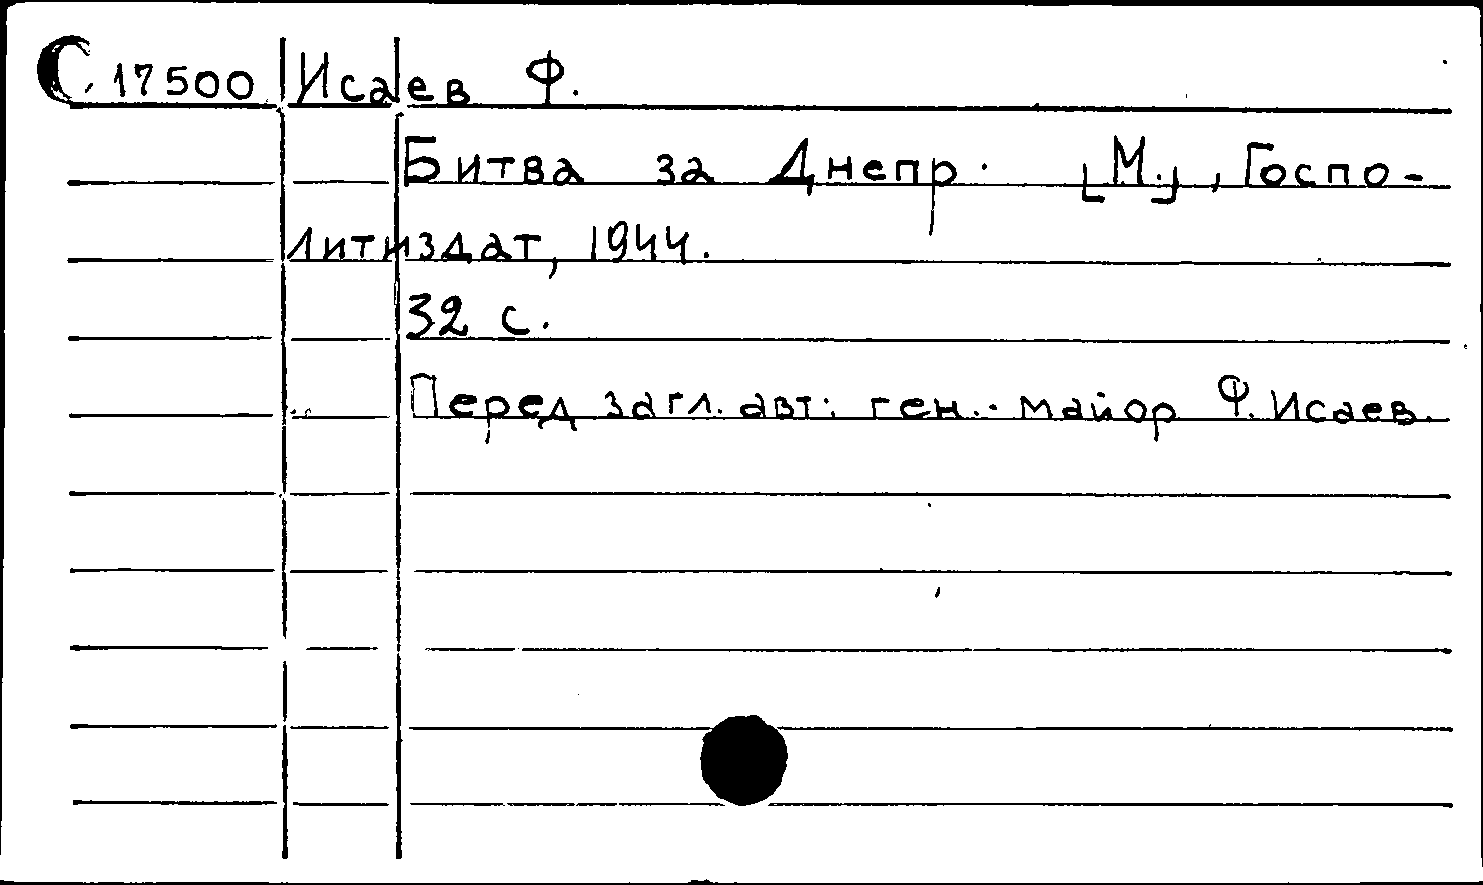 С 17500 Исаев Ф.
Битва за Днепр. [М.], Госпо-
литиздат, 1944.
32 с.
Перед загл. авт: ген.-майор Ф. Исаев.